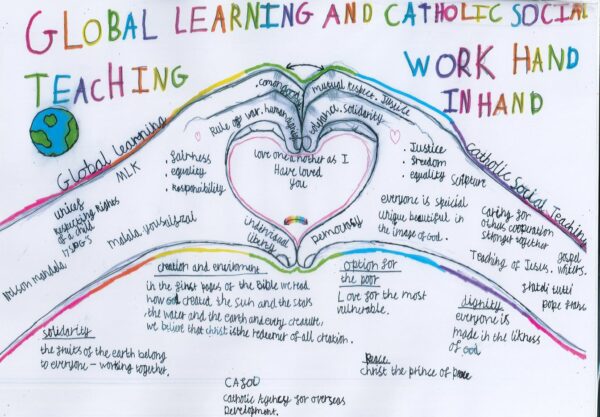 GLOBAL LEARNING AND CATHOLIC SOCIAL
TEACHING
WORK HAND
IN HAND
Global Learning
MLK
common good
Rule of war. human dignity
mutual respect. Justice
solidarity
Catholic Social Teaching
. fairness
equality
. Responsibility
love one another as I
Have loved
you
. Justice
. freedom
. equality
Scripture
unicef
Respecting Rights
of a child
17 SDG'S
Malala yousafzai
Nelson Mandela
individual
liberty
Democracy
everyone is special
unique beautiful in
the image of God.
caring for
others cooperation
stronger together
Teaching of Jesus.
gospel
fratelli tutti
pope
creation and enviroment
in the first pages of the Bible we read
how God created the sun and the stars
the water and the earth and every creature,
we believe that christ is the redeemer of all creation.
option for
the poor
Love for the most
vulnerable.
dignity
everyone is
made in the likness
of God
solidarity
the fruits of the earth belong
to everyone - working together.
Peace
christ the prince of peace
CAFOD
Catholic Agency for overseas
Development.